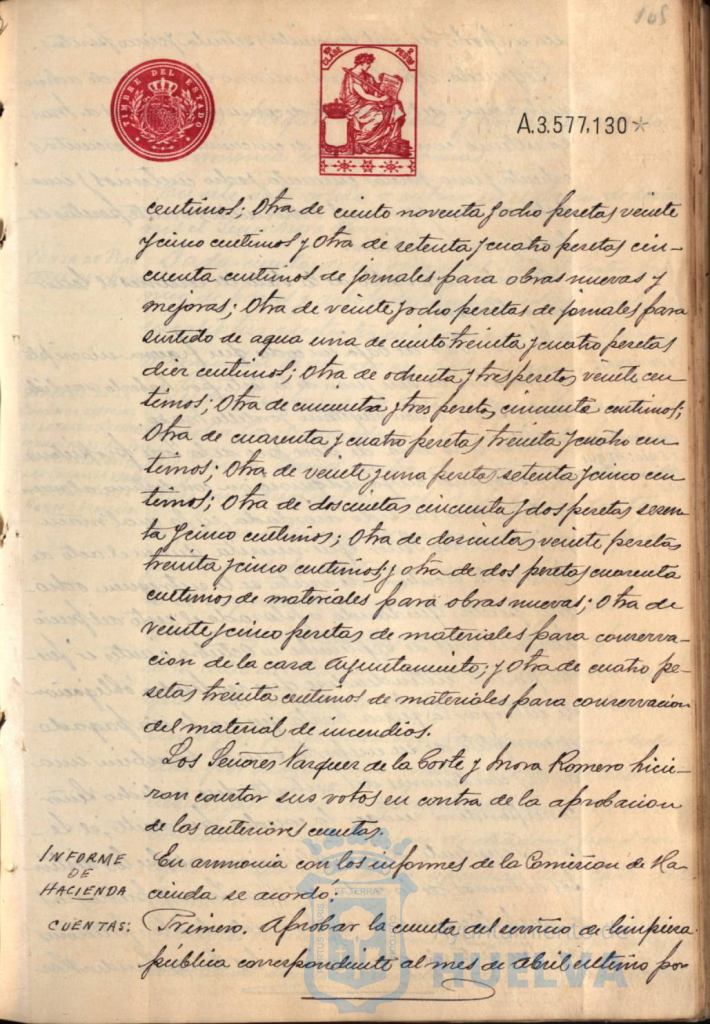 105
TIMBRE DEL ESTADO
CLASE
A.3.577,130*
centimos; Otra de ciento noventa y ocho pesetas veinte
y cinco centimos y Otra de setenta y cuatro pesetas cin-
cuenta centimos de jornales para obras nuevas y
mejoras; Otra de veinte y ocho pesetas de jornales para
surtido de agua una de ciento treinta y cuatro pesetas
diez centimos; Otra de ochenta y tres pesetas veinte cen
timos; Otra de cincuenta y tres pesetas cincuenta centimos;
Otra de cuarenta y cuatro pesetas treinta y cuatro cen
timos; Otra de veinte y una pesetas setenta y cinco cen
timos; Otra de doscientas cincuenta y dos pesetas sesen
ta y cinco centimos; Otra de doscientas veinte pesetas
treinta y cinco centimos; y otra de dos pesetas cuarenta
centimos de materiales para obras nuevas; Otra de
veinte y cinco pesetas de materiales para conserva-
cion de la casa Ayuntamiento; y Otra de cuatro pe-
setas treinta centimos de materiales para conservacion
del material de incendios.
Los Señores Vazquez de la Corte y Mora Romero hicie-
ron constar sus votos en contra de la aprobacion
de las anteriores cuentas.
INFORME
DE
HACIENDA
En armonia con los informes de la Comision de Ha-
cienda se acordó:
CUENTAS:
Primero. Aprobar la cuenta del servicio de limpieza
pública correspondiente al mes de Abril ultimo por
Ayuntamiento de
HUELVA